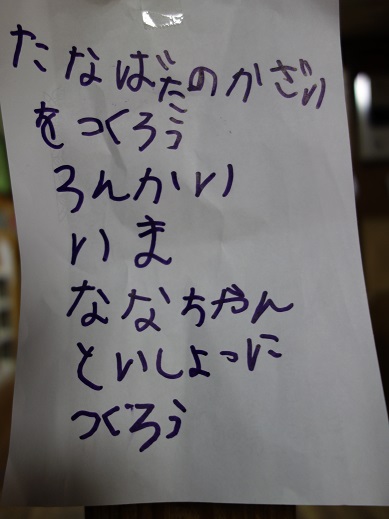 たなばたのかざり
をつくろう
ろんかい
いま
ななちゃん
といしょっに
つくろう